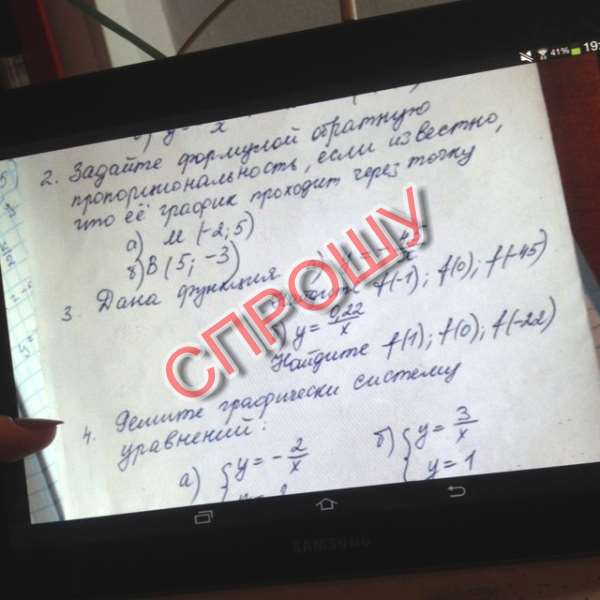 41% 19:
б) y = x
2. Задайте формулой обратную
пропорциональность, если известно,
что её график проходит через точку
а) M (-2; 5)
б) B (5; -3)
3. Дана функция
f(-1); f(0); f(-45)
y = 0,22/x
Найдите f(1); f(0); f(-22)
СПРОШУ
4. Решите графически систему
уравнений:
а) { y = - 2/x
б) { y = 3/x
y = 1
SAMSUNG